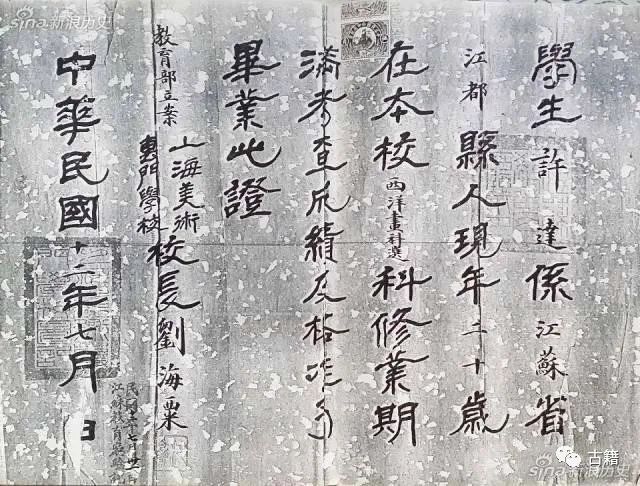 學生許達係江蘇省
江都縣人現年二十歲
在本校西洋畫科選科修業期
滿考查成績及格准予
畢業此證
教育部立案
上海美術
專門學校
校長劉海粟
中華民國十二年七月 日
sina 新浪历史
古籍
sina 新浪历史